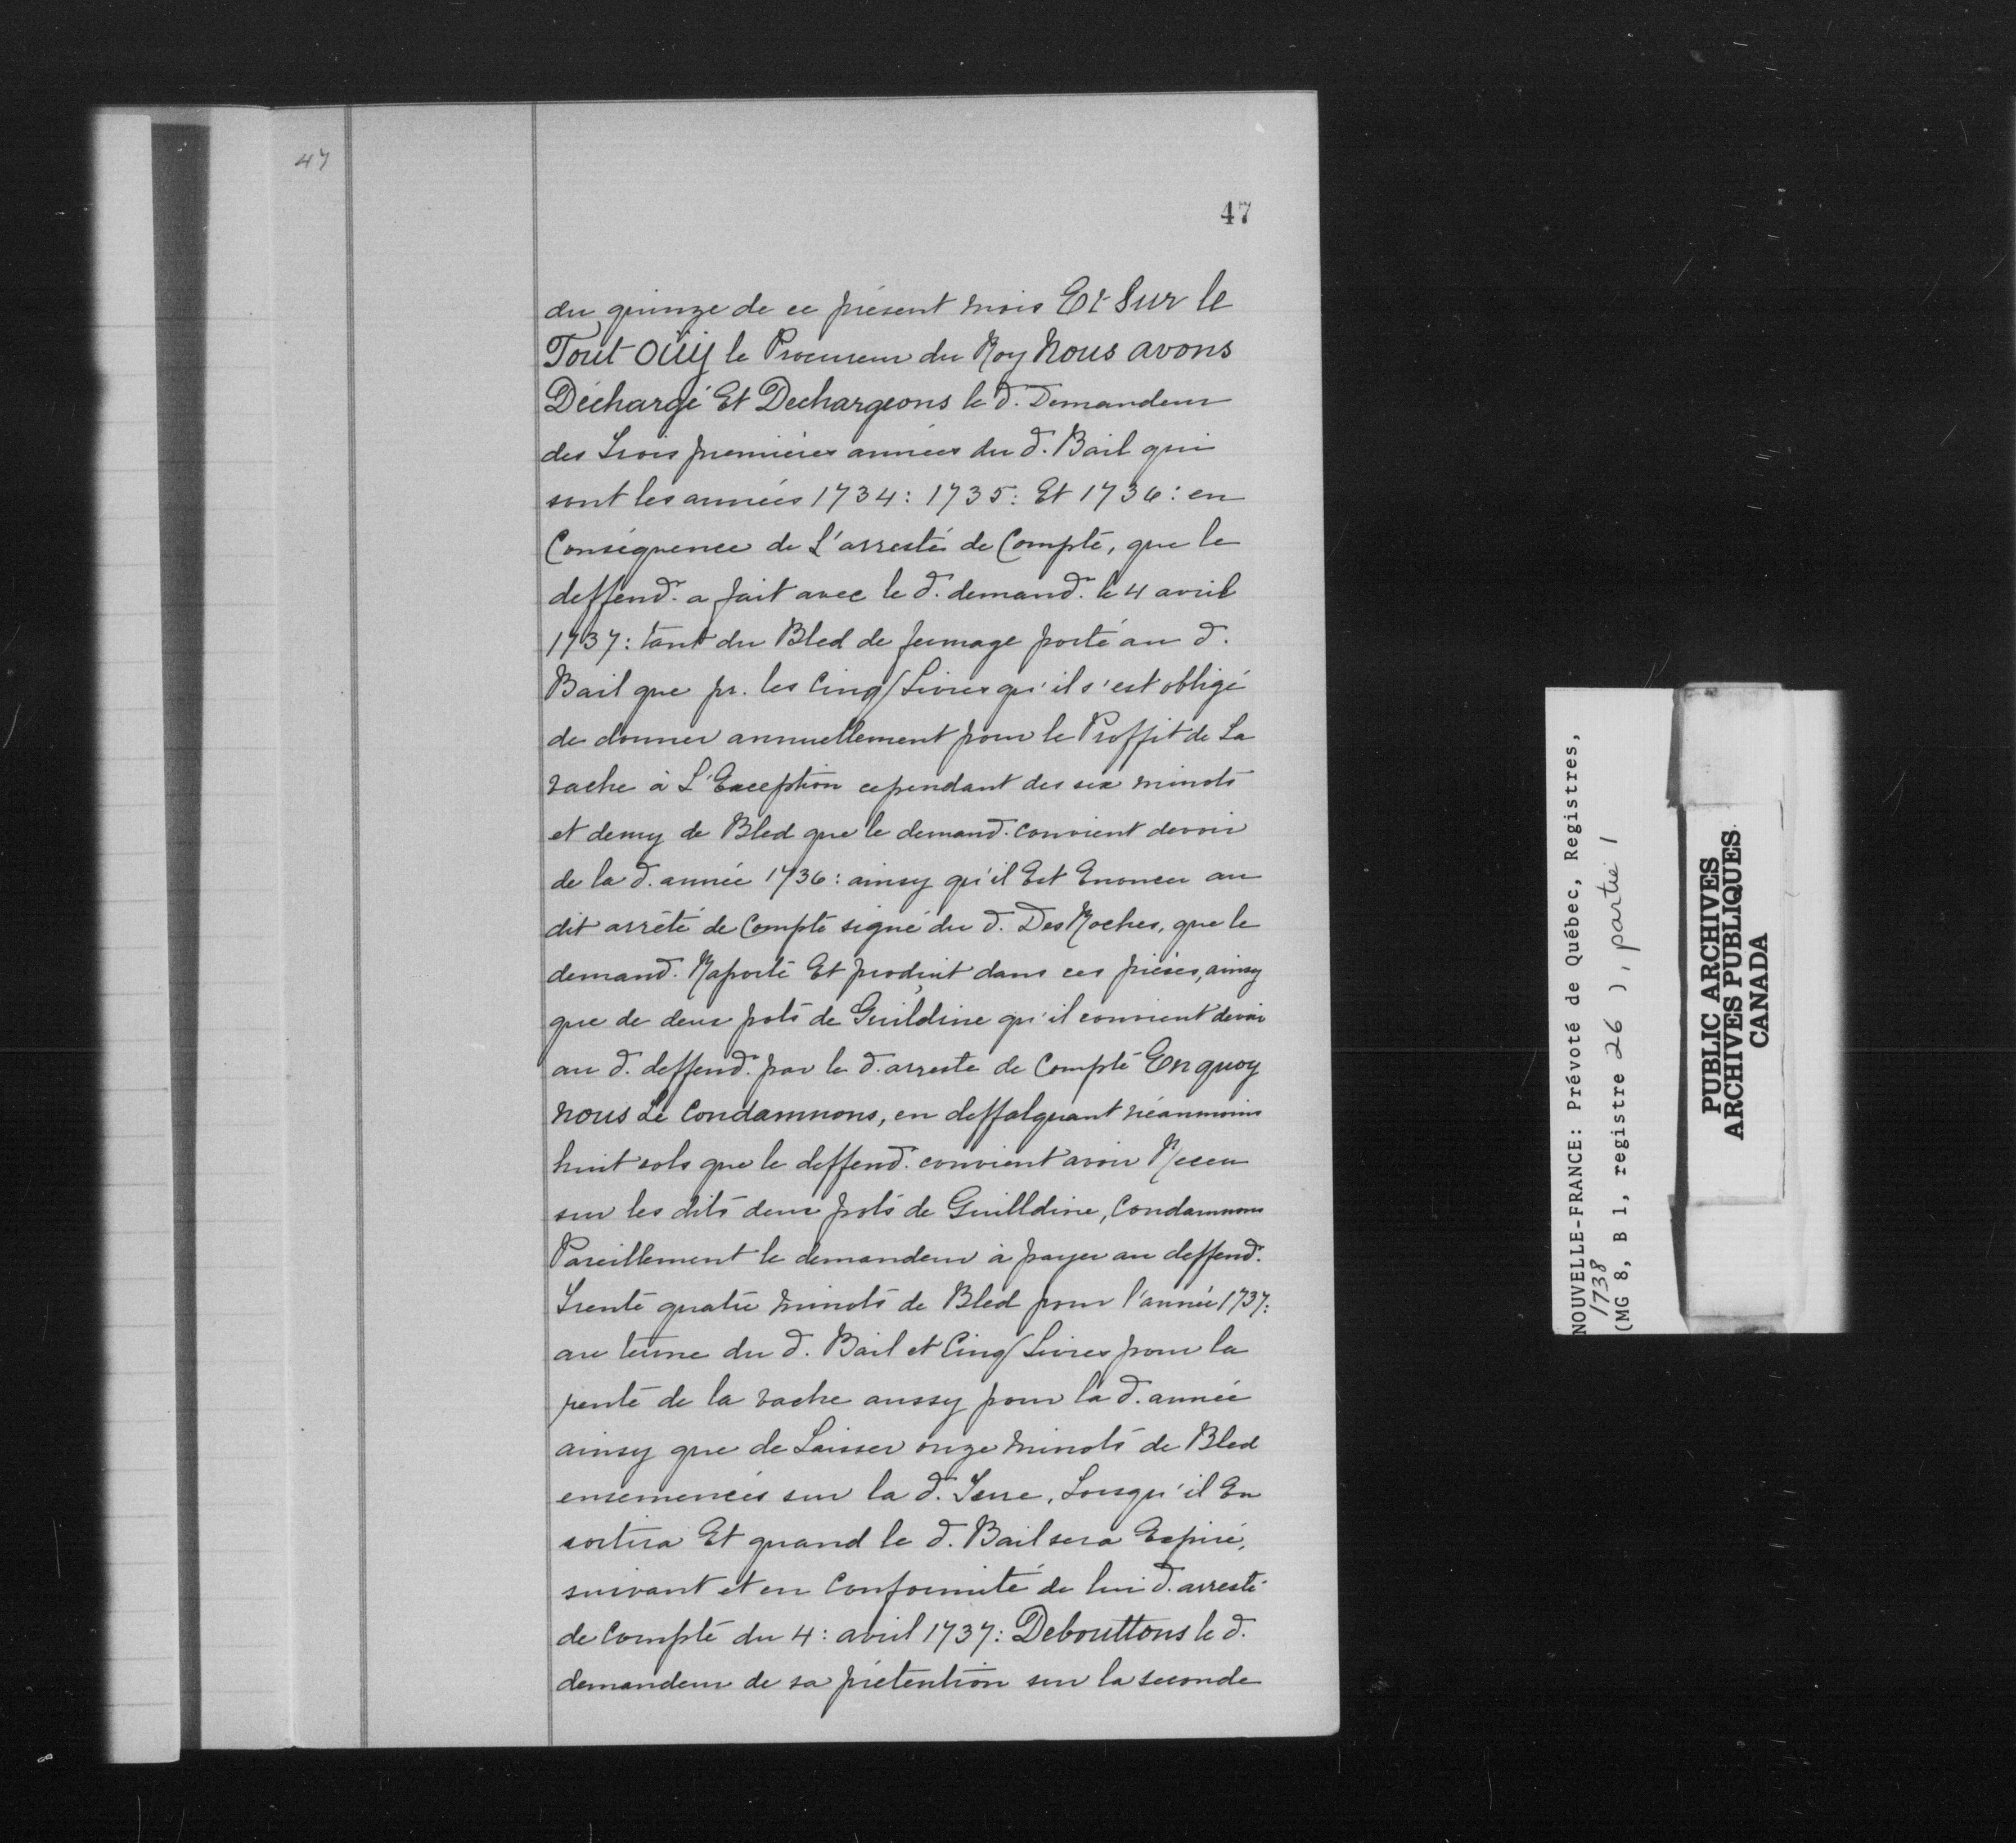 47
47
du quinze de ce présent mois Et Sur le
Tout Oüy le Procureur du Roy Nous avons
Déchargé Et Dechargeons le d. Demandeur
des Trois premières années du d. Bail qui
sont les années 1734: 1735: Et 1736: en
Conséquence de L'arresté de Compte, que le
deffendr. a fait avec le d. demandr. le 4 avril
1737: tant du Bled de fermage porté au d.
Bail que pr. les Cinq Livres qu'il s'est obligé
de donner annuellement pour le Proffit de La
vache à L'Exception cependant des six minots
et demy de Bled que le demand. convient devoir
de la d. année 1736: ainsy qu'il Est Enoncu au
dit arrêté de Compte signé du d. DesRoches, que le
demand. Raporte Et produit dans ces pièces, ainsy
que de deux pots de Guildine qu'il convient devoir
au d. deffendr. par le d. arreste de Compte En quoy
Nous Le Condamnons, en deffalquant néanmoins
huit sols que le deffend. convient avoir Receu
sur les dits deux pots de Guilldine, Condamnons
Pareillement le demandeur à payer au deffendr.
Trente quatre minots de Bled pour l'année 1737:
au terme du d. Bail et Cinq Livres pour la
rente de la vache aussy pour la d. année
ainsy que de Laisser onze minots de Bled
ensemencés sur la d. Terre, Lorsqu'il En
sortira Et quand le d. Bail sera Expiré,
suivant et en Conformité de lui d. arresté
de Compte du 4: avril 1737: Debouttons le d.
demandeur de sa prétention sur la seconde
NOUVELLE-FRANCE: Prévoté de Québec, Registres,
1738
(MG 8, B 1, registre 26 ), partie 1
PUBLIC ARCHIVES
ARCHIVES PUBLIQUES
CANADA